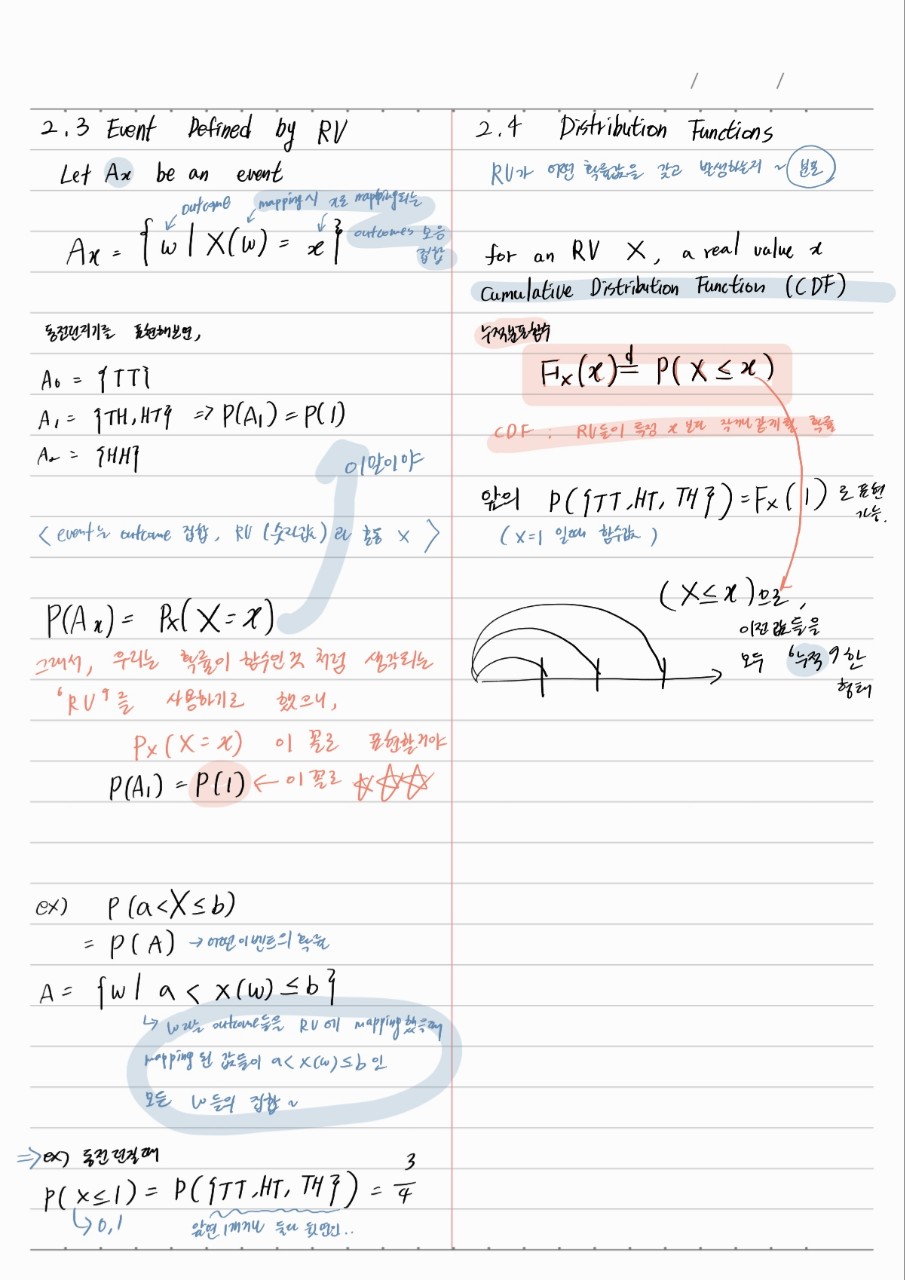 / /
2.3 Event Defined by RV
Let Ax be an event
outcome
mapping시 x로 mapping되는
outcomes 모음
집합
Ax = { w | X(w) = x }
동전던지기를 표현해보면,
A₀ = {TT}
A₁ = {TH, HT} => P(A₁) = P(1)
A₂ = {HH}
이말이야
< event는 outcome 집합, RV (숫자값)과 혼동 X >
P(Ax) = Px(X = x)
그래서, 우리는 확률이 함수인것 처럼 생각되는
'RV'를 사용하기로 했으니,
Px(X = x) 이 꼴로 표현할거야
P(A₁) = P(1) ← 이 꼴로 ☆☆☆
ex) P(a < X ≤ b)
= P(A) → 어떤이벤트의 확률
A = {w | a < X(w) ≤ b}
↳ w라는 outcome들을 RV에 mapping했을때
mapping 된 값들이 a < X(w) ≤ b 인
모든 w들의 집합 ~
⇒ ex) 동전 던질때
P(X ≤ 1) = P({TT, HT, TH}) = 3/4
↳ 0, 1
앞면 1개거나 둘다 뒷면인..
2.4 Distribution Functions
RV가 어떤 확률값을 갖고 발생하는지 ~ 분포
for an RV X, a real value x
Cumulative Distribution Function (CDF)
누적분포함수
Fx(x) ≝ P(X ≤ x)
CDF : RV들이 특정 x 보다 작거나 같게될 확률
앞의 P({TT, HT, TH}) = Fx(1) 로 표현
가능.
(x=1 일때 함수값)
(X ≤ x)으로,
이전 값들을
모두 '누적'한
형태